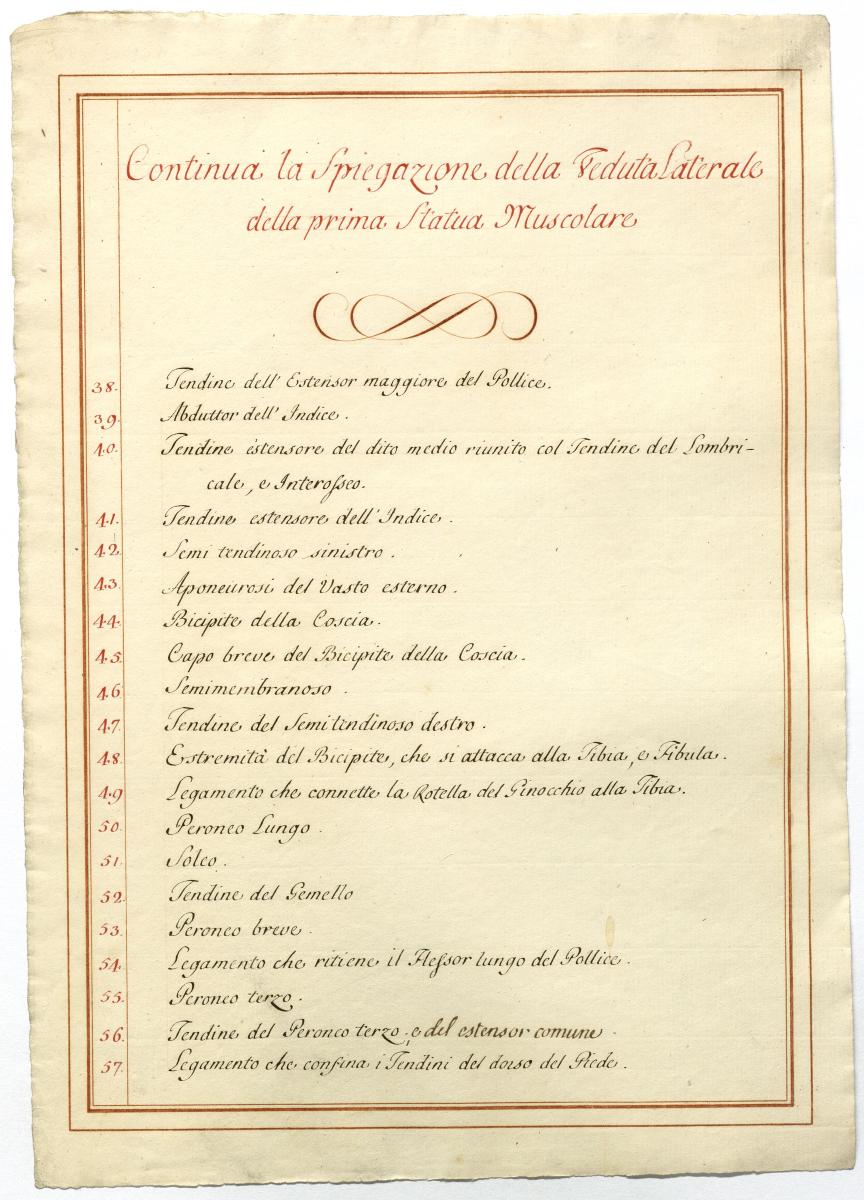 Continua la Spiegazione della Veduta Laterale
della prima Statua Muscolare
38. Tendine dell' Estensor maggiore del Pollice.
39. Abduttor dell' Indice.
40. Tendine estensore del dito medio riunito col Tendine del Lombri-
cale, e Interoſseo.
41. Tendine estensore dell' Indice.
42. Semi tendinoso sinistro.
43. Aponeurosi del Vasto esterno.
44. Bicipite della Coscia.
45. Capo breve del Bicipite della Coscia.
46. Semimembranoso.
47. Tendine del Semitendinoso destro.
48. Estremità del Bicipite, che si attacca alla Tibia, e Fibula.
49. Legamento che connette la Rotella del Ginocchio alla Tibia.
50. Peroneo Lungo.
51. Soleo.
52. Tendine del Gemello
53. Peroneo breve.
54. Legamento che ritiene il Fleſsor lungo del Pollice.
55. Peroneo terzo.
56. Tendine del Peroneo terzo, e del estensor comune.
57. Legamento che confina i Tendini del dorso del Piede.